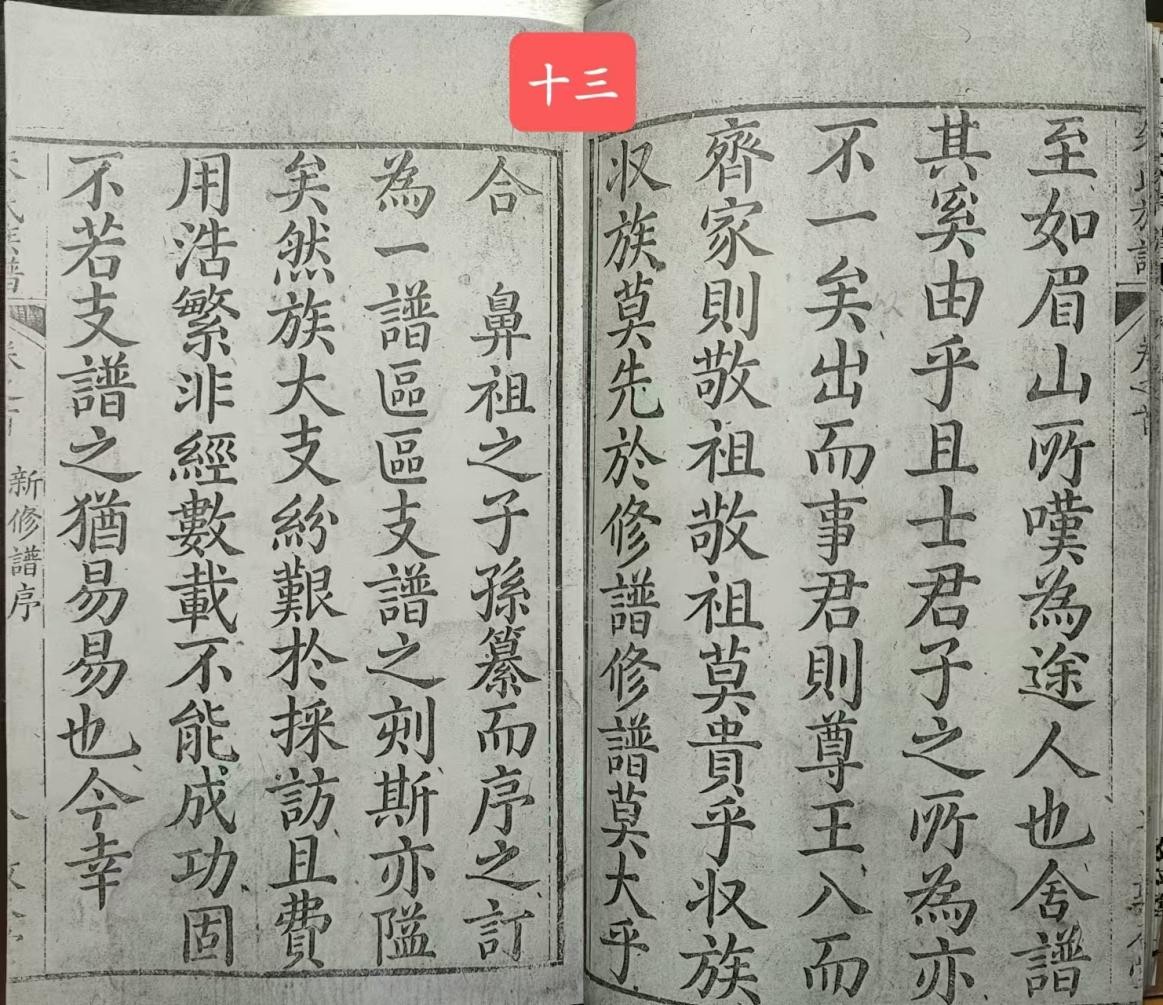 十三
至如眉山所嘆為途人也舍譜
其奚由乎且士君子之所為亦
不一矣出而事君則尊王入而
齊家則敬祖敬祖莫貴乎収族
収族莫先於修譜修譜莫大乎
合鼻祖之子孫纂而序之訂
為一譜區區支譜之刻斯亦隘
矣然族大支紛艱於採訪且費
用浩繁非經數載不能成功固
不若支譜之猶易易也今幸
新修譜序